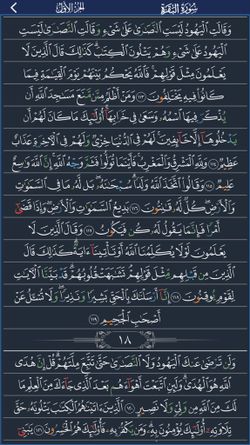 سُورَةُ البَقَرَةِ الجُزْءُ الأَوَّلُ
وَقَالَتِ ٱلۡيَهُودُ لَيۡسَتِ ٱلنَّصَٰرَىٰ عَلَىٰ شَيۡءٖ وَقَالَتِ ٱلنَّصَٰرَىٰ لَيۡسَتِ
ٱلۡيَهُودُ عَلَىٰ شَيۡءٖ وَهُمۡ يَتۡلُونَ ٱلۡكِتَٰبَۗ كَذَٰلِكَ قَالَ ٱلَّذِينَ لَا
يَعۡلَمُونَ مِثۡلَ قَوۡلِهِمۡۚ فَٱللَّهُ يَحۡكُمُ بَيۡنَهُمۡ يَوۡمَ ٱلۡقِيَٰمَةِ فِيمَا
كَانُواْ فِيهِ يَخۡتَلِفُونَ ١١٣ وَمَنۡ أَظۡلَمُ مِمَّن مَّنَعَ مَسَٰجِدَ ٱللَّهِ أَن
يُذۡكَرَ فِيهَا ٱسۡمُهُۥ وَسَعَىٰ فِي خَرَابِهَآۚ أُوْلَٰٓئِكَ مَا كَانَ لَهُمۡ أَن
يَدۡخُلُوهَآ إِلَّا خَآئِفِينَۚ لَهُمۡ فِي ٱلدُّنۡيَا خِزۡيٞ وَلَهُمۡ فِي ٱلۡأٓخِرَةِ عَذَابٌ
عَظِيمٞ ١١٤ وَلِلَّهِ ٱلۡمَشۡرِقُ وَٱلۡمَغۡرِبُۚ فَأَيۡنَمَا تُوَلُّواْ فَثَمَّ وَجۡهُ ٱللَّهِۚ إِنَّ ٱللَّهَ وَٰسِعٌ
عَلِيمٞ ١١٥ وَقَالُواْ ٱتَّخَذَ ٱللَّهُ وَلَدٗاۗ سُبۡحَٰنَهُۥۖ بَل لَّهُۥ مَا فِي ٱلسَّمَٰوَٰتِ
وَٱلۡأَرۡضِۖ كُلّٞ لَّهُۥ قَٰنِتُونَ ١١٦ بَدِيعُ ٱلسَّمَٰوَٰتِ وَٱلۡأَرۡضِۖ وَإِذَا قَضَىٰٓ
أَمۡرٗا فَإِنَّمَا يَقُولُ لَهُۥ كُن فَيَكُونُ ١١٧ وَقَالَ ٱلَّذِينَ لَا
يَعۡلَمُونَ لَوۡلَا يُكَلِّمُنَا ٱللَّهُ أَوۡ تَأۡتِينَآ ءَايَةٞۗ كَذَٰلِكَ قَالَ
ٱلَّذِينَ مِن قَبۡلِهِم مِّثۡلَ قَوۡلِهِمۡۘ تَشَٰبَهَتۡ قُلُوبُهُمۡۗ قَدۡ بَيَّنَّا ٱلۡأٓيَٰتِ
لِقَوۡمٖ يُوقِنُونَ ١١٨ إِنَّآ أَرۡسَلۡنَٰكَ بِٱلۡحَقِّ بَشِيرٗا وَنَذِيرٗاۖ وَلَا تُسۡـَٔلُ عَنۡ
أَصۡحَٰبِ ٱلۡجَحِيمِ ١١٩
١٨
وَلَن تَرۡضَىٰ عَنكَ ٱلۡيَهُودُ وَلَا ٱلنَّصَٰرَىٰ حَتَّىٰ تَتَّبِعَ مِلَّتَهُمۡۗ قُلۡ إِنَّ هُدَى
ٱللَّهِ هُوَ ٱلۡهُدَىٰۗ وَلَئِنِ ٱتَّبَعۡتَ أَهۡوَآءَهُم بَعۡدَ ٱلَّذِي جَآءَكَ مِنَ ٱلۡعِلۡمِ مَا
لَكَ مِنَ ٱللَّهِ مِن وَلِيّٖ وَلَا نَصِيرٍ ١٢٠ ٱلَّذِينَ ءَاتَيۡنَٰهُمُ ٱلۡكِتَٰبَ يَتۡلُونَهُۥ حَقَّ
تِلَاوَتِهِۦٓ أُوْلَٰٓئِكَ يُؤۡمِنُونَ بِهِۦۗ وَمَن يَكۡفُرۡ بِهِۦ فَأُوْلَٰٓئِكَ هُمُ ٱلۡخَٰسِرُونَ ١٢١ يَٰبَنِيٓ